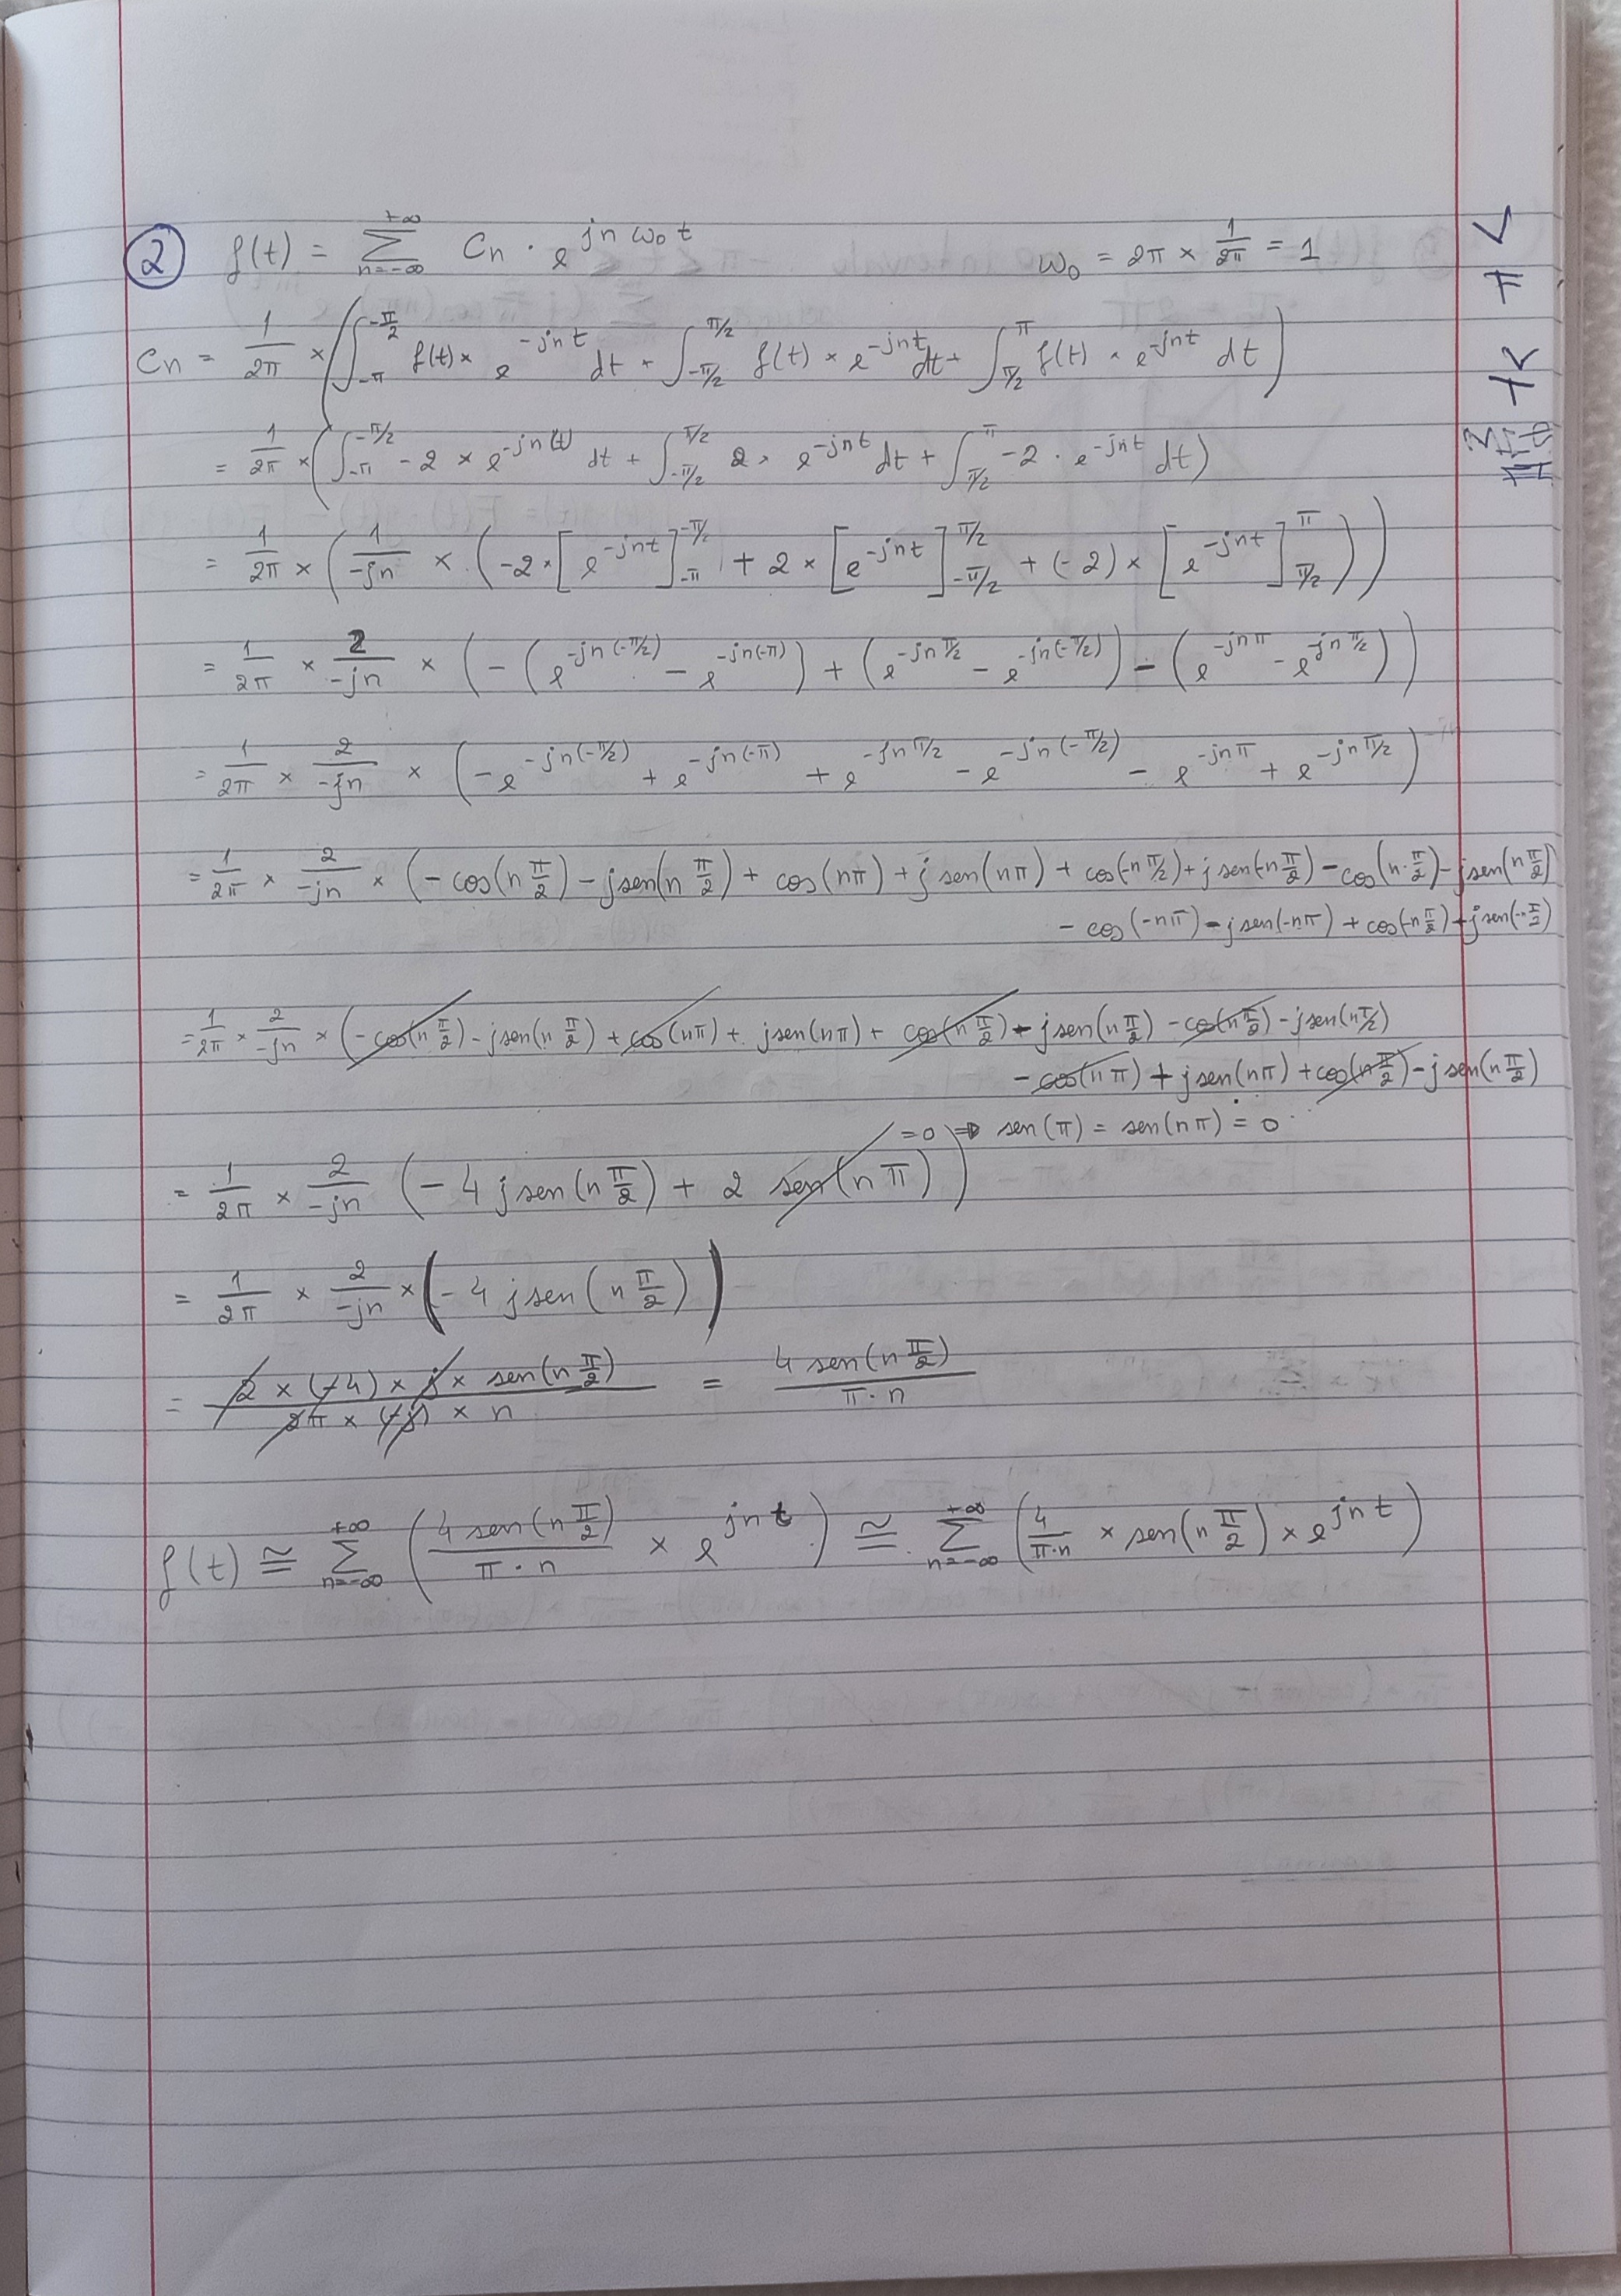 ② f(t) = ∑_{n=-∞}^{+∞} Cn · e^{jnω₀t}    ω₀ = 2π × 1/2π = 1
Cn = 1/2π × (∫_{-π}^{-π/2} f(t) × e^{-jnt} dt + ∫_{-π/2}^{π/2} f(t) × e^{-jnt} dt + ∫_{π/2}^{π} f(t) · e^{-jnt} dt)
= 1/2π × (∫_{-π}^{-π/2} -2 × e^{-jn(t)} dt + ∫_{-π/2}^{π/2} 2 · e^{-jnt} dt + ∫_{π/2}^{π} -2 · e^{-jnt} dt)
= 1/2π × (1/-jn × (-2 × [e^{-jnt}]_{-π}^{-π/2} + 2 × [e^{-jnt}]_{-π/2}^{π/2} + (-2) × [e^{-jnt}]_{π/2}^{π}))
= 1/2π × 2/-jn × (-(e^{-jn(-π/2)} - e^{-jn(-π)}) + (e^{-jnπ/2} - e^{-jn(-π/2)}) - (e^{-jnπ} - e^{-jnπ/2}))
= 1/2π × 2/-jn × (-e^{-jn(-π/2)} + e^{-jn(-π)} + e^{-jnπ/2} - e^{-jn(-π/2)} - e^{-jnπ} + e^{-jnπ/2})
= 1/2π × 2/-jn × (-cos(n π/2) - jsen(n π/2) + cos(nπ) + j sen(nπ) + cos(-n π/2) + j sen(-n π/2) - cos(n·π/2) - jsen(n π/2)
- cos(-nπ) - jsen(-nπ) + cos(-n π/2) + jsen(-n π/2)
= 1/2π × 2/-jn × (-cos(n π/2) - jsen(n π/2) + cos(nπ) + jsen(nπ) + cos(n π/2) - jsen(n π/2) - cos(n π/2) - jsen(n π/2)
- cos(nπ) + jsen(nπ) + cos(n π/2) - jsen(n π/2)
=0 ⇒ sen(π) = sen(nπ) = 0
= 1/2π × 2/-jn (-4 jsen(n π/2) + 2 sen(nπ))
= 1/2π × 2/-jn × (-4 jsen(n π/2))
= 2 × (-4) × j × sen(n π/2) / 2π × (-j) × n = 4 sen(n π/2) / π·n
f(t) ≅ ∑_{n=-∞}^{+∞} (4 sen(n π/2) / π·n × e^{jnt}) ≅ ∑_{n=-∞}^{+∞} (4/π·n × sen(n π/2) × e^{jnt})